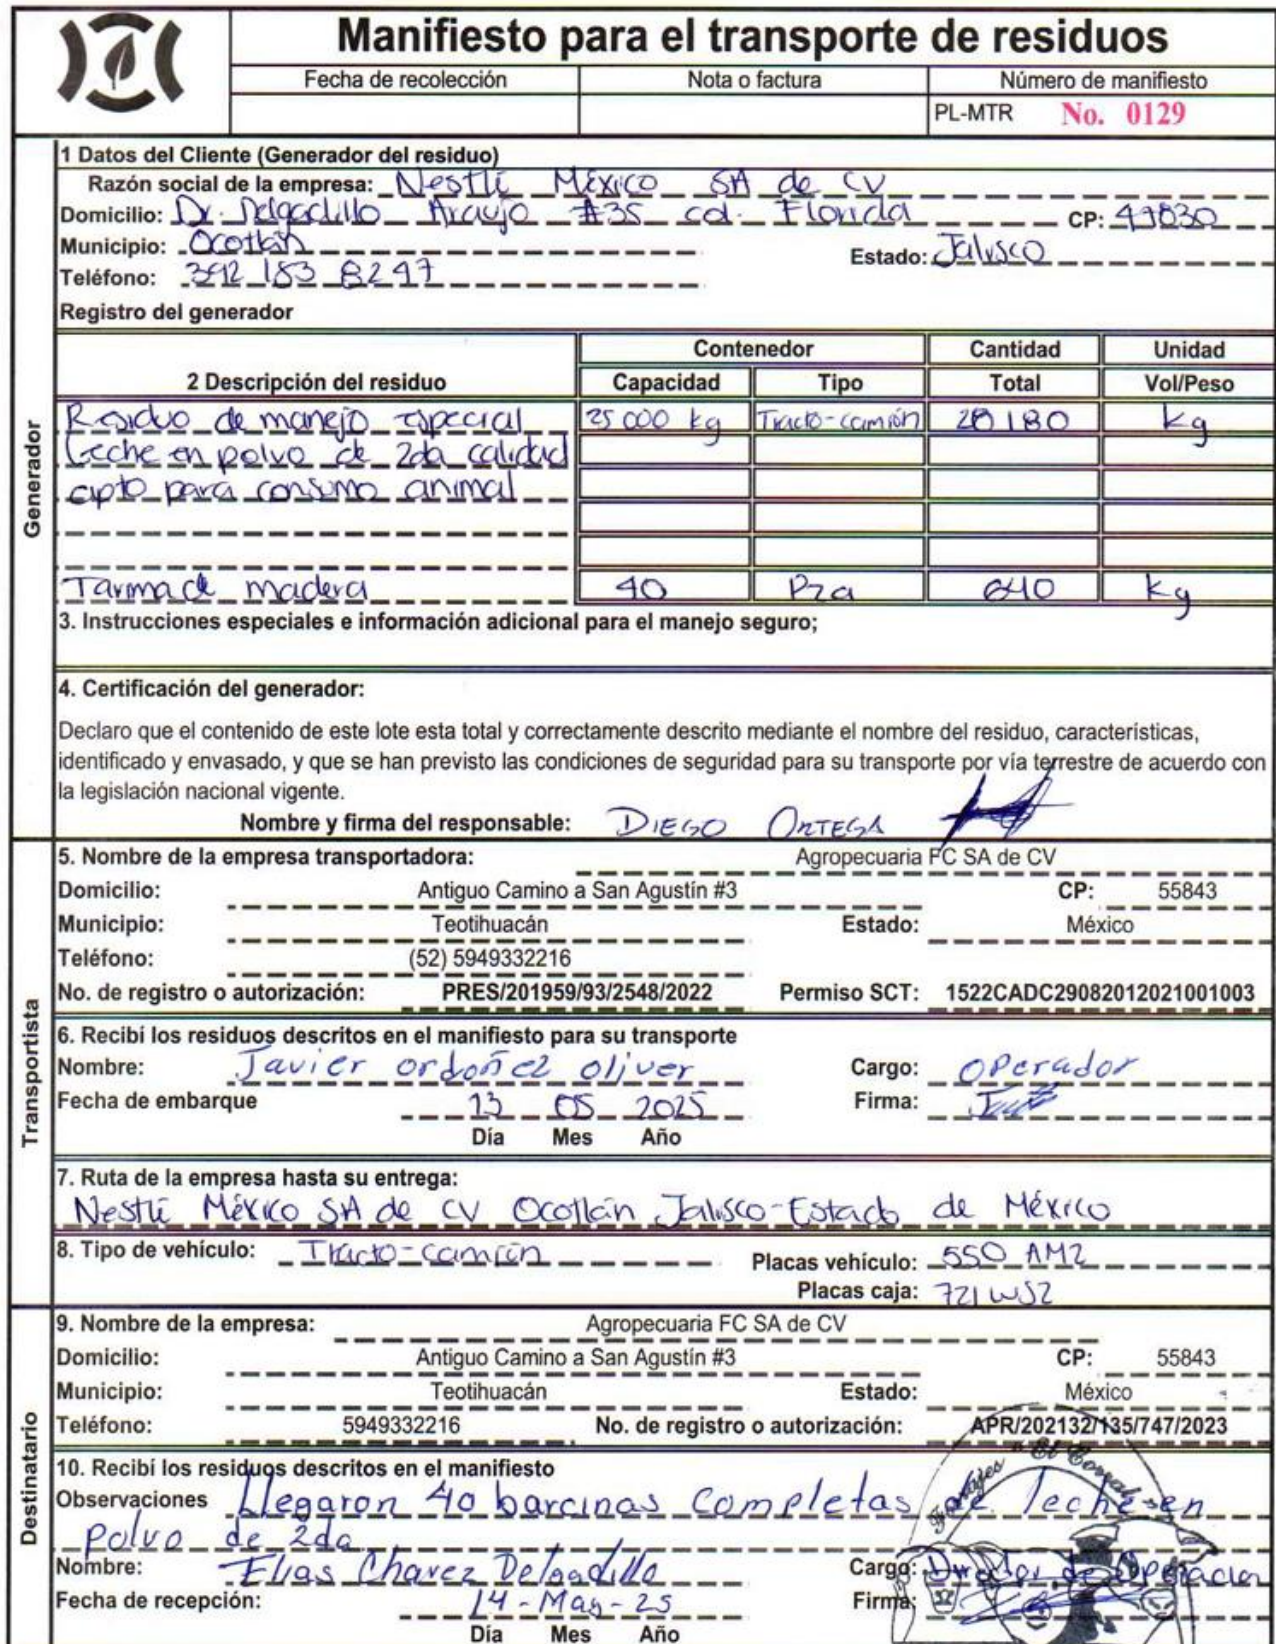 Manifiesto para el transporte de residuos
Fecha de recolección Nota o factura Número de manifiesto
PL-MTR No. 0129
1 Datos del Cliente (Generador del residuo)
Razón social de la empresa: Nestlé México SA de CV
Domicilio: Dr. Delgadillo Araujo #35 col. Florida CP: 47830
Municipio: Ocotlán Estado: Jalisco
Teléfono: 392 183 8247
Registro del generador
Generador
2 Descripción del residuo Contenedor Cantidad Unidad
Capacidad Tipo Total Vol/Peso
Residuo de manejo especial 25 000 kg Tracto-camión 20 180 kg
Leche en polvo de 2da calidad
apto para consumo animal
Tarima de madera 40 Pza 640 kg
3. Instrucciones especiales e información adicional para el manejo seguro;
4. Certificación del generador:
Declaro que el contenido de este lote esta total y correctamente descrito mediante el nombre del residuo, características,
identificado y envasado, y que se han previsto las condiciones de seguridad para su transporte por vía terrestre de acuerdo con
la legislación nacional vigente.
Nombre y firma del responsable: DIEGO ORTEGA
Transportista
5. Nombre de la empresa transportadora: Agropecuaria FC SA de CV
Domicilio: Antiguo Camino a San Agustín #3 CP: 55843
Municipio: Teotihuacán Estado: México
Teléfono: (52) 5949332216
No. de registro o autorización: PRES/201959/93/2548/2022 Permiso SCT: 1522CADC29082012021001003
6. Recibí los residuos descritos en el manifiesto para su transporte
Nombre: Javier ordoñez oliver Cargo: operador
Fecha de embarque 13 05 2025 Firma:
Día Mes Año
7. Ruta de la empresa hasta su entrega:
Nestlé México SA de CV Ocotlán Jalisco-Estado de México
8. Tipo de vehículo: Tracto-camión Placas vehículo: 550 AM2
Placas caja: 721 WS2
Destinatario
9. Nombre de la empresa: Agropecuaria FC SA de CV
Domicilio: Antiguo Camino a San Agustín #3 CP: 55843
Municipio: Teotihuacán Estado: México
Teléfono: 5949332216 No. de registro o autorización: APR/202132/135/747/2023
10. Recibí los residuos descritos en el manifiesto
Observaciones Llegaron 40 barcinas completas de leche en
polvo de 2da
Forrajes "El Corral"
Nombre: Elias Chavez Delgadillo Cargo: Director de Operacion
Fecha de recepción: 14-May-25 Firma:
Día Mes Año